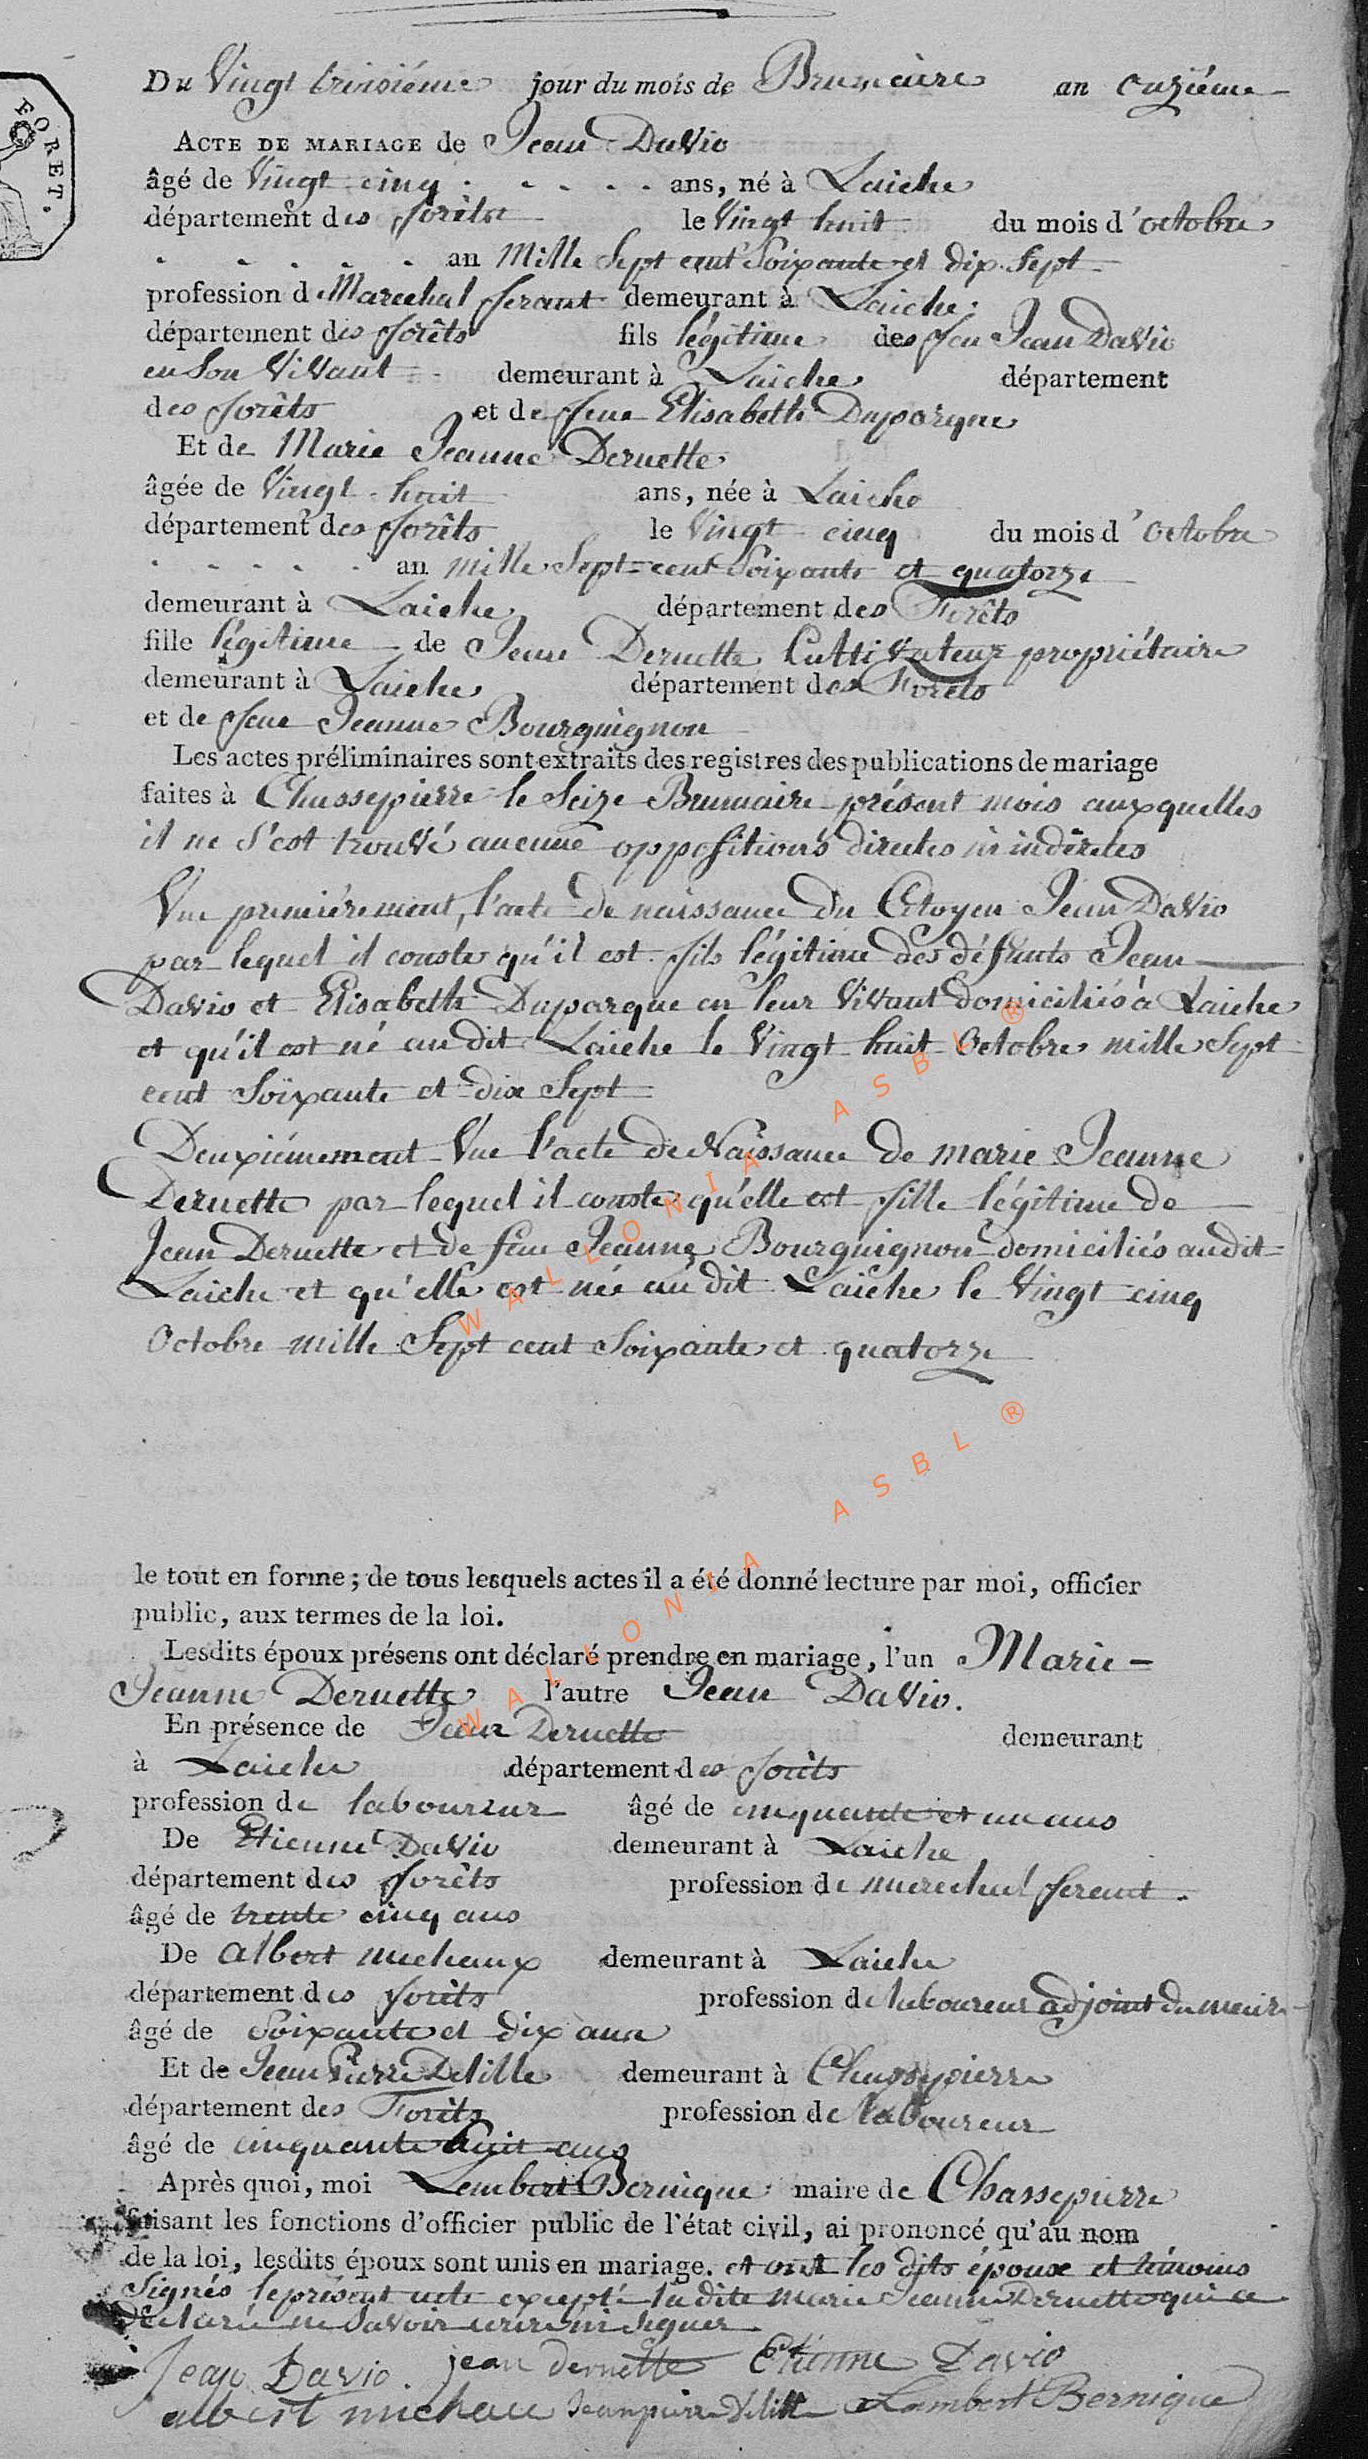 FORET.
Du Vingt troisiéme jour du mois de Brumaire an onziéme
ACTE DE MARIAGE de Jean Davio
âgé de Vingt cinq ans, né à Laiche
département des forêts le Vingt huit du mois d'octobre
an Mille Sept cent Soixante et dix Sept
profession de Marechal ferant demeurant à Laiche
département des forêts fils légitime des feu Jean Davio
en Son Vivant demeurant à Laiche département
des forêts et de feue Elisabeth Duparque
Et de Marie Jeanne Deruette
âgée de Vingt huit ans, née à Laiche
département des forêts le Vingt cinq du mois d'octobre
an mille Sept cent Soixante et quatorze
demeurant à Laiche département des Forêts
fille légitime de Jean Deruette Cultivateur propriétaire
demeurant à Laiche département des Forêts
et de feue Jeanne Bourguignon
Les actes préliminaires sont extraits des registres des publications de mariage
faites à Chassepierre le Seize Brumaire présent mois auxquelles
il ne S'est trouvé aucune oppositions directes ni indirectes
Vue premiérement, l'acte de naissance du Citoyen Jean Davio
par lequel il conste qu'il est fils légitime des défunts Jean
Davio et Elisabeth Duparque en leur Vivant domiciliés à Laiche
et qu'il est né au dit Laiche le Vingt huit Octobre mille Sept
cent Soixante et dix Sept
Deuxiémement Vue l'acte de Naissance de marie Jeanne
Deruette par lequel il conste qu'elle est fille légitime de
Jean Deruette et de feue Jeanne Bourguignon domiciliés audit
Laiche et qu'elle est née au dit Laiche le Vingt cinq
Octobre mille Sept cent Soixante et quatorze
WALLONIA ASBL ®
le tout en forme; de tous lesquels actes il a été donné lecture par moi, officier
public, aux termes de la loi.
Lesdits époux présens ont déclaré prendre en mariage, l'un Marie-
Jeanne Deruette l'autre Jean Davio.
En présence de Jean Deruette demeurant
à Laiche département des forêts
profession de laboureur âgé de cinquante et un ans
De Etienne Davio demeurant à Laiche
département des forêts profession de marechal ferent.
âgé de trente cinq ans
De albert michaux demeurant à Laiche
département des forêts profession de laboureur adjoint du maire
âgé de Soixante et dix ans
Et de Jean Pierre Delille demeurant à Chassepierre
département des Forêts profession de laboureur
âgé de cinquante huit ans
Après quoi, moi Lambert Bernique maire de Chassepierre
faisant les fonctions d'officier public de l'état civil, ai prononcé qu'au nom
de la loi, lesdits époux sont unis en mariage. et ont les dits époux et témoins
Signés le présent acte excepté la dite Marie Jeanne Deruette qui a
Déclaré ne Savoir ecrire ni Signer
WALLONIA ASBL ®
Jean Davio. jean deruette Etienne Davio
albert michaux Jeanpierre Delille Lambert Bernique